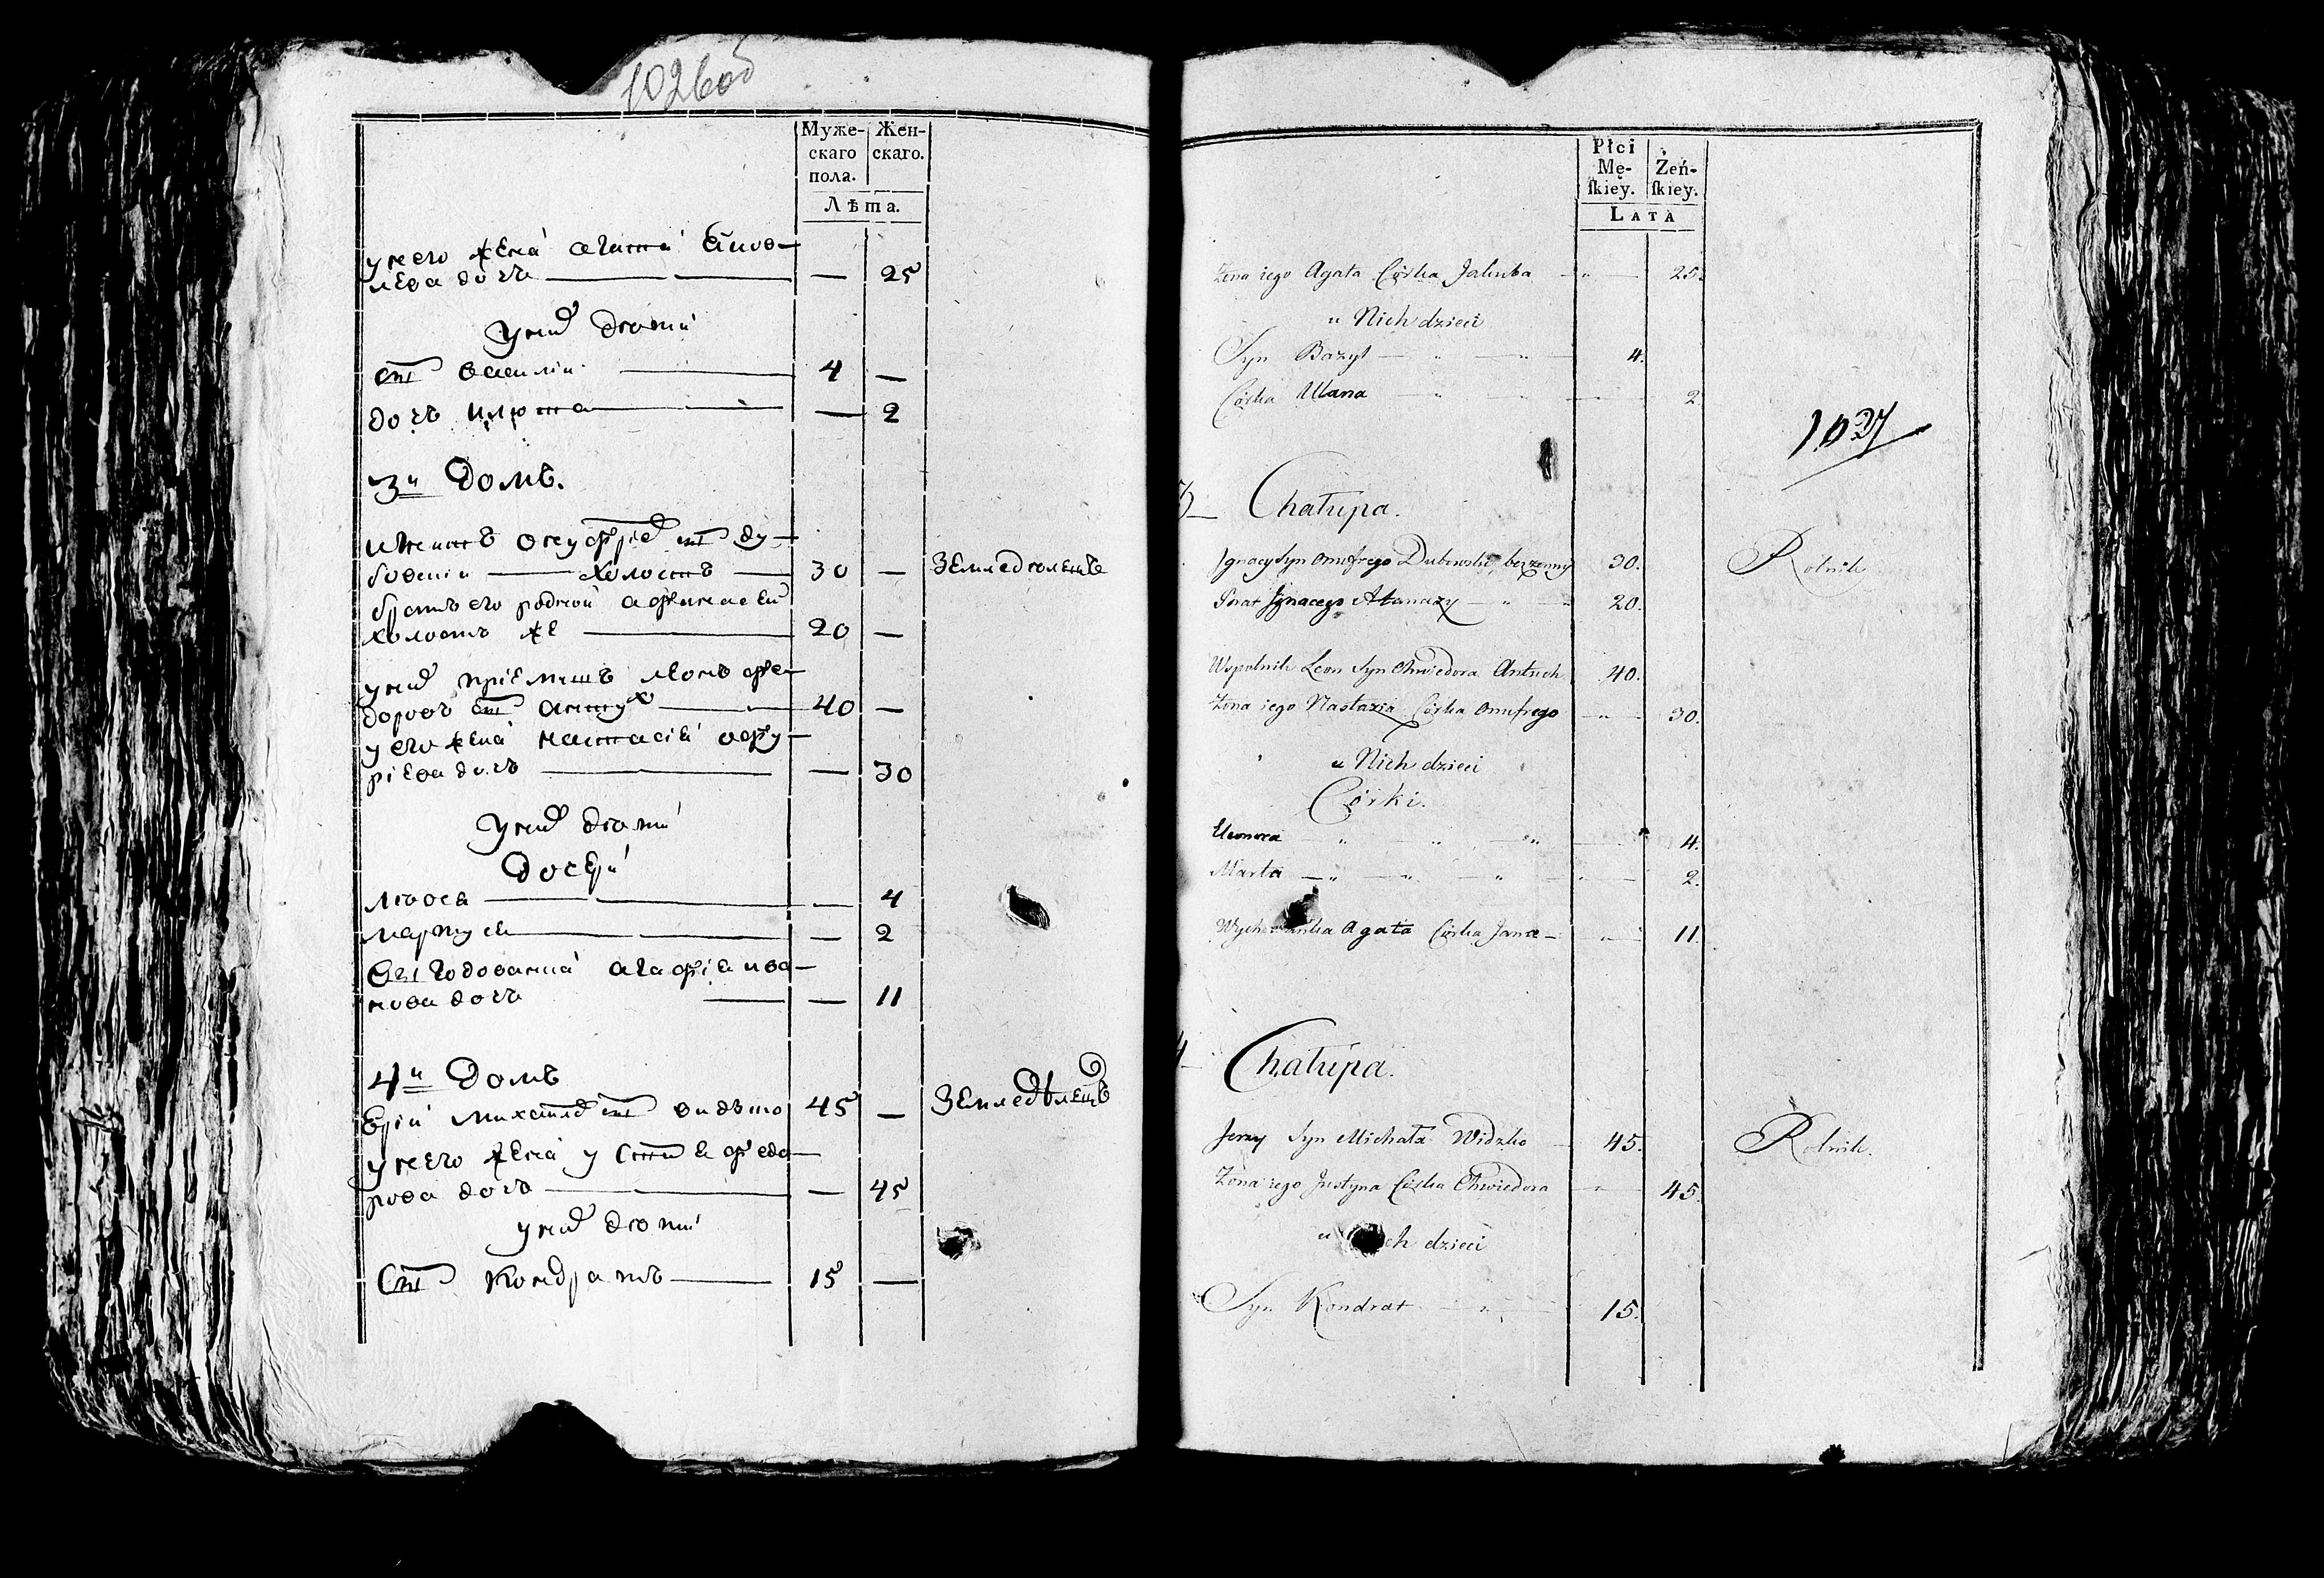 1026об
Муже-
скаго
пола.
Жен-
скаго.
Лѣта.
у него жена агата
лева дочъ — — — 25
у них дѣти
сынъ василiи — 4 —
дочъ — — 2
3и домъ.
игнатъ онуфрiев сынъ ду-
бовскiи — холостъ — 30 — земледѣлецъ
братъ его родной афанасей
холостъ же — 20 —
у них прiемышъ леонъ фе-
доровъ сынъ антух — 40 —
у его жена настасiя
рiева дочъ — — 30
у них дѣти
дочери
— — 4
— — 2
выгодованка агафiя ива-
нова дочъ — — 11
4и домъ
Ерiи михаилов сынъ видзко 45 — земледѣлецъ
у него жена устиня федо-
рова дочъ — — 45
у них дѣти
Сынъ Кондратъ — 15 —
Płci
Mę-
ſkiey.
Żeń-
ſkiey.
Lata
1027
Żona iego Agata Córka Jakuba — „ — 25.
u Nich dzieci
Syn Bazyl — „ — „ — 4.
Córka Ulana — „ — 2
3 Chałupa.
Ignacy Syn Onufrego Dubowski bezżenny 30. Rolnik
Brat Ignacego Atanazy — „ — 20.
Wspolnik Leon Syn Chwiedora Antuch 40.
Żona iego Nastazia Córka Onufrego — „ — 30.
u Nich dzieci
Córki.
Eleonora — „ — „ — „ — 4.
Marta — „ — „ — „ — 2.
Wychowanka Agata Córka Jana — „ — 11.
4 Chałupa.
Jerzy Syn Michała Widzko — 45. Rolnik.
Żona iego Justyna Córka Chwiedora — „ — 45.
u Nich dzieci
Syn Kondrat — „ — 15.